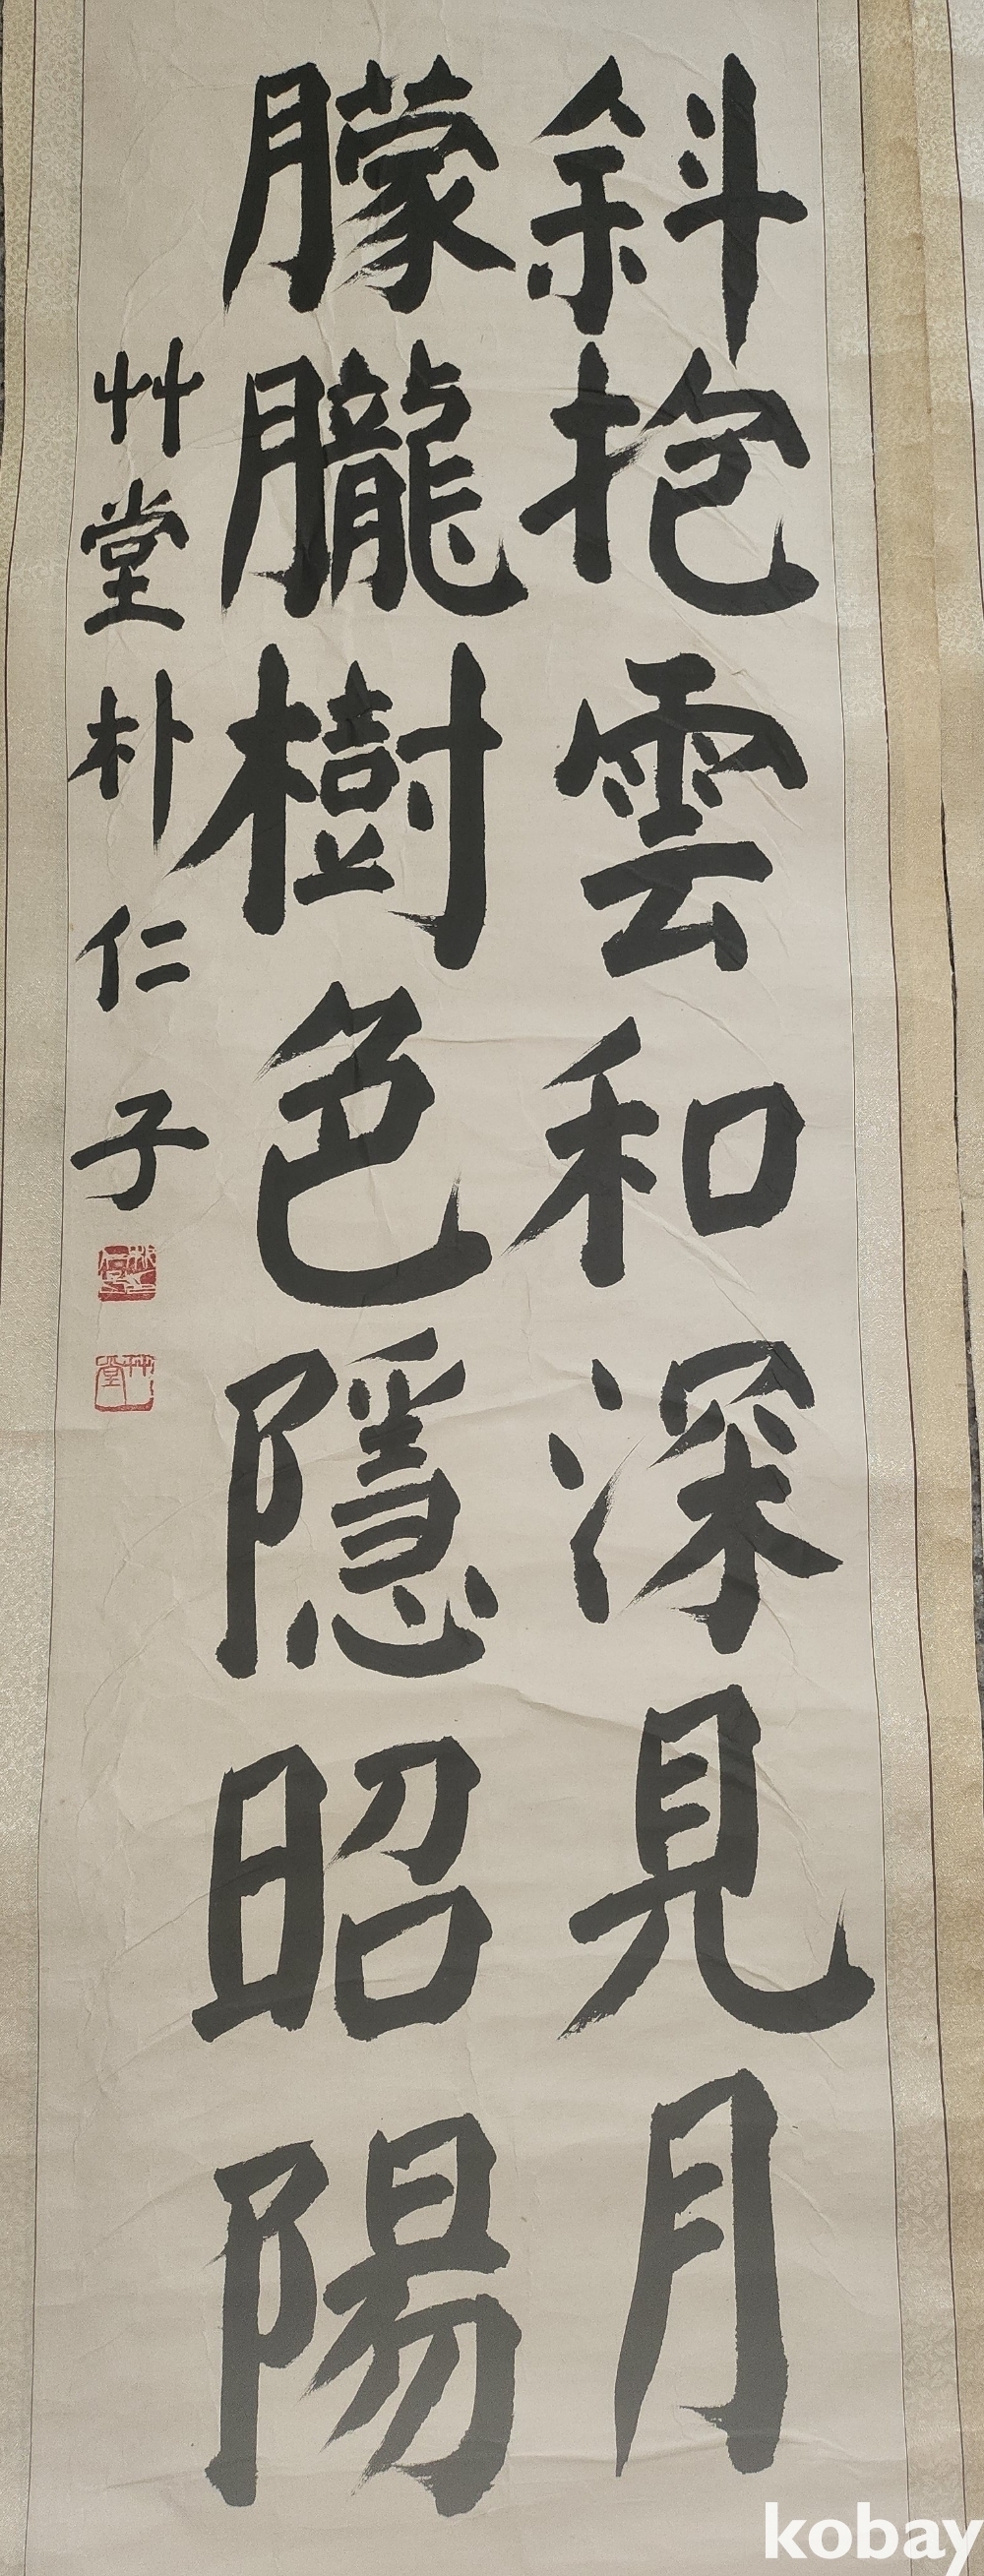 斜抱雲和深見月
朦朧樹色隱昭陽
艸堂朴仁子
艸堂
kobay